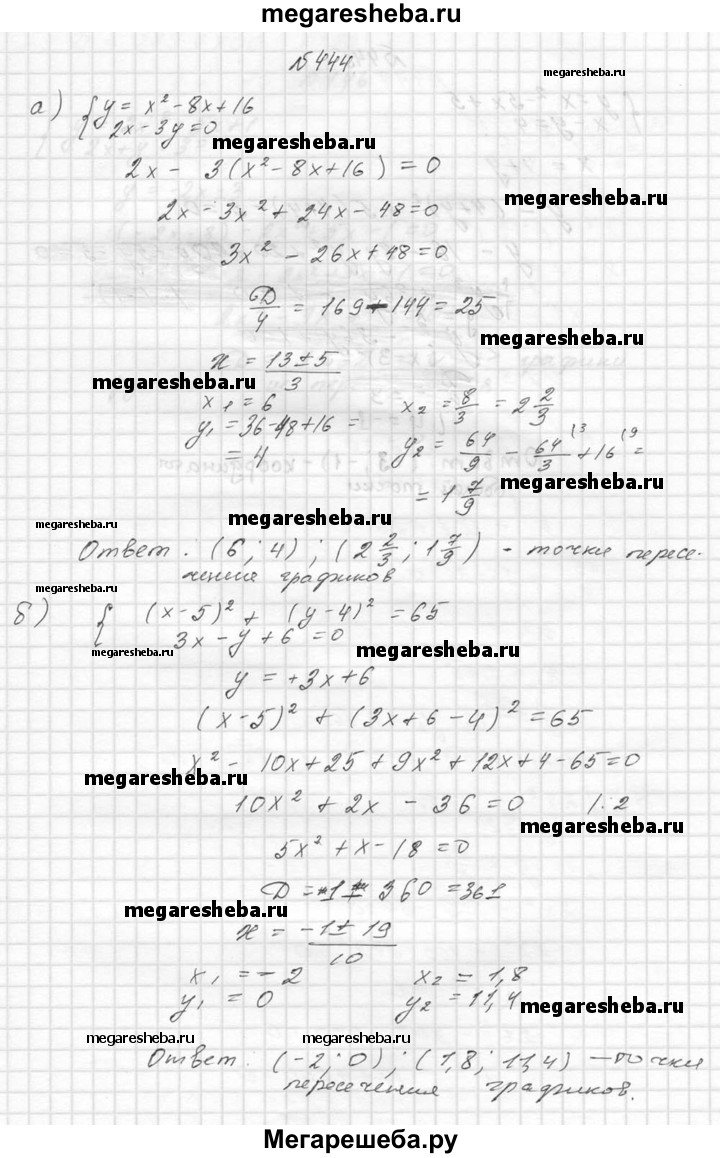 megaresheba.ru
№444
megaresheba.ru
а) { y = x² - 8x + 16
2x - 3y = 0
megaresheba.ru
2x - 3(x² - 8x + 16) = 0
megaresheba.ru
2x - 3x² + 24x - 48 = 0
3x² - 26x + 48 = 0
D/4 = 169 - 144 = 25
megaresheba.ru
x = (13 ± 5)/3
megaresheba.ru
x₁ = 6 x₂ = 8/3 = 2 2/3
y₁ = 36 - 48 + 16 = y₂ = 64/9 - 64/3 (3 + 16 (9 =
= 4
megaresheba.ru
= 1 7/9
megaresheba.ru
megaresheba.ru
Ответ: (6; 4); (2 2/3; 1 7/9) - точки пересе-
чения графиков
megaresheba.ru
б) { (x-5)² + (y-4)² = 65
3x - y + 6 = 0
megaresheba.ru
megaresheba.ru
y = +3x + 6
(x-5)² + (3x + 6 - 4)² = 65
x² - 10x + 25 + 9x² + 12x + 4 - 65 = 0
megaresheba.ru
10x² + 2x - 36 = 0 /:2
megaresheba.ru
5x² + x - 18 = 0
D = 1 + 360 = 361
megaresheba.ru
x = (-1 ± 19)/10
x₁ = -2 x₂ = 1,8
y₁ = 0 y₂ = 11,4
megaresheba.ru
megaresheba.ru
megaresheba.ru
Ответ: (-2; 0); (1,8; 11,4) - точки
пересечения графиков.
Мегарешеба.ру